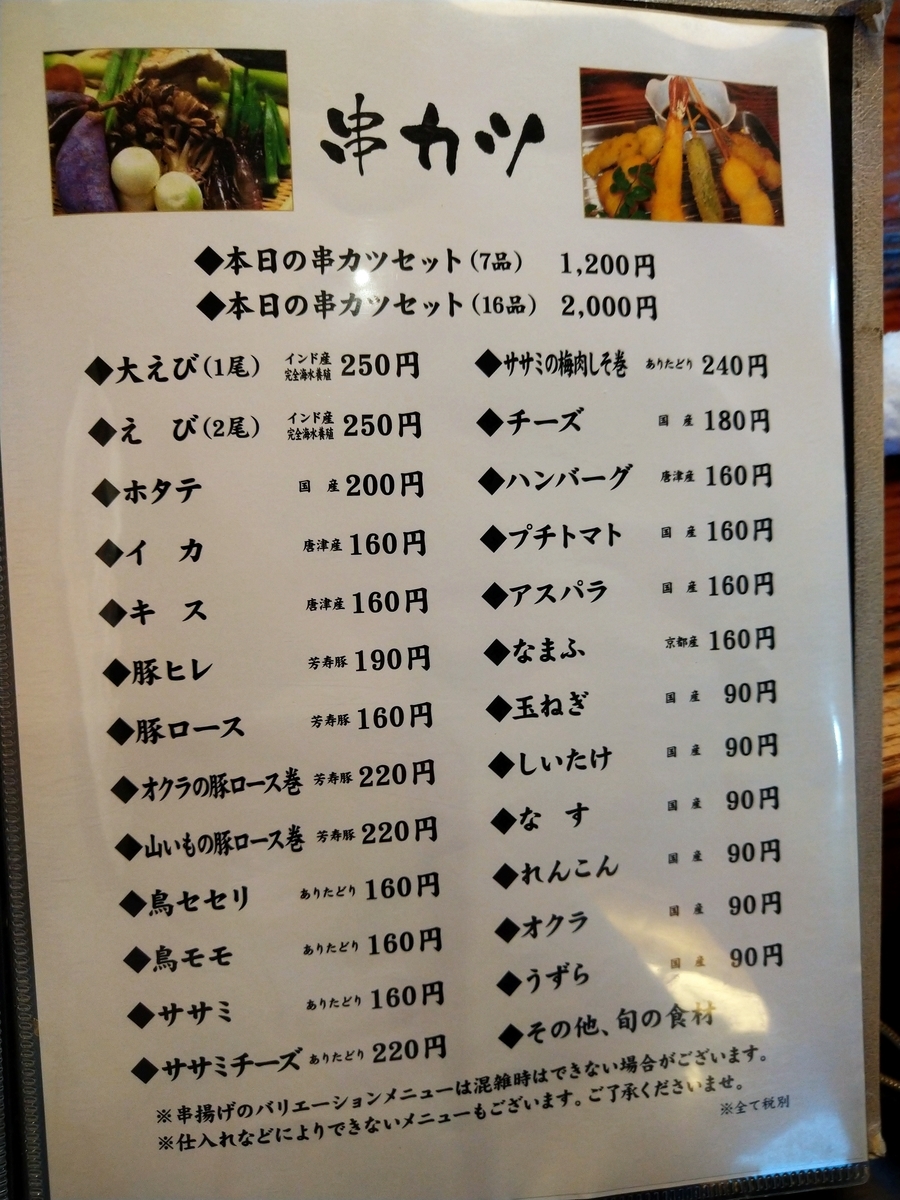 串カツ
◆本日の串カツセット(7品) 1,200円
◆本日の串カツセット(16品) 2,000円
◆大えび(1尾) インド産 完全海水養殖 250円
◆え び(2尾) インド産 完全海水養殖 250円
◆ホタテ 国 産 200円
◆イ カ 唐津産 160円
◆キ ス 唐津産 160円
◆豚ヒレ 芳寿豚 190円
◆豚ロース 芳寿豚 160円
◆オクラの豚ロース巻 芳寿豚 220円
◆山いもの豚ロース巻 芳寿豚 220円
◆鳥セセリ ありたどり 160円
◆鳥モモ ありたどり 160円
◆ササミ ありたどり 160円
◆ササミチーズ ありたどり 220円
◆ササミの梅肉しそ巻 ありたどり 240円
◆チーズ 国 産 180円
◆ハンバーグ 唐津産 160円
◆プチトマト 国 産 160円
◆アスパラ 国 産 160円
◆なまふ 京都産 160円
◆玉ねぎ 国 産 90円
◆しいたけ 国 産 90円
◆な す 国 産 90円
◆れんこん 国 産 90円
◆オクラ 国 産 90円
◆うずら 国 産 90円
◆その他、旬の食材
※串揚げのバリエーションメニューは混雑時はできない場合がございます。
※仕入れなどによりできないメニューもございます。ご了承くださいませ。
※全て税別